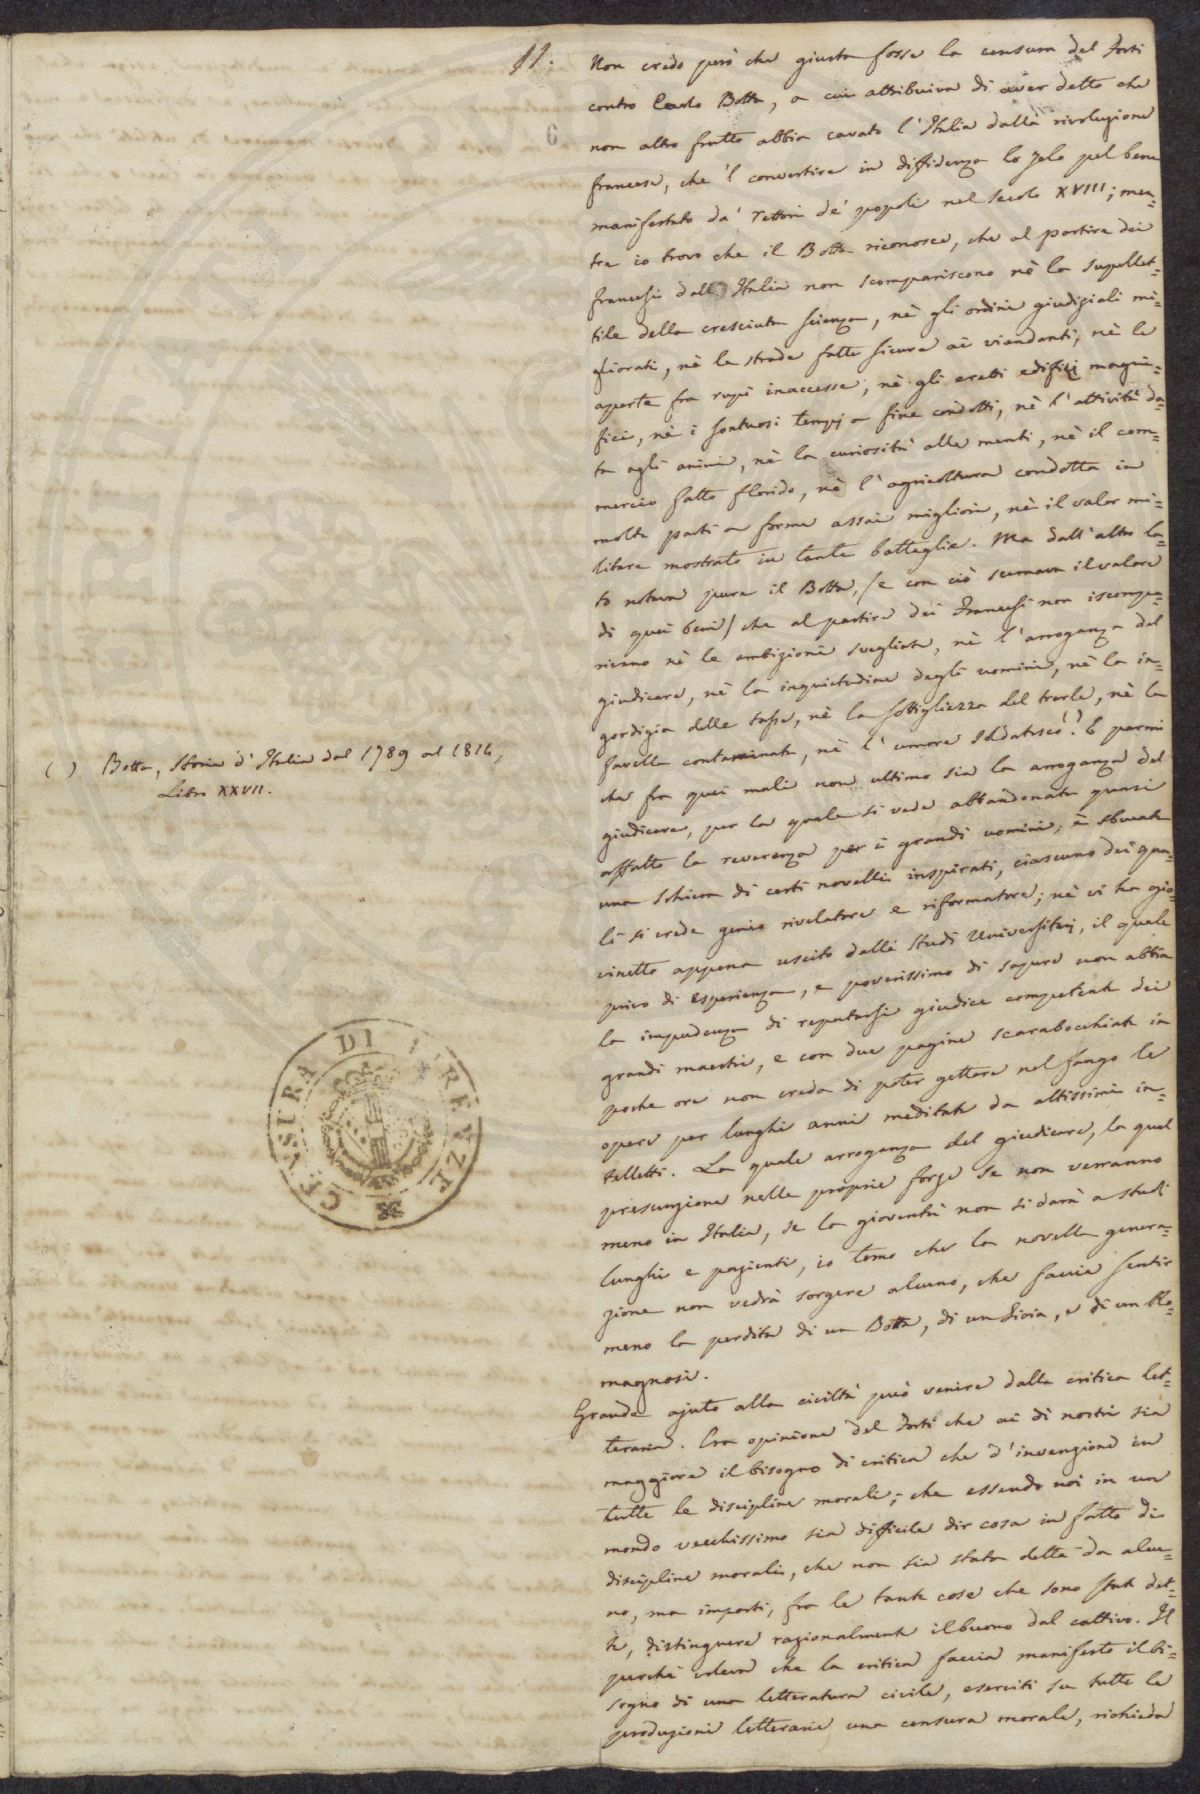 11.
6
Non credo però che giusta fosse la censura del Forti
contro Carlo Botta, a cui attribuiva di aver detto che
non altro frutto abbia cavato l'Italia dalla rivoluzione
francese, che 'l convertire in diffidenza lo zelo pel bene
manifestato da' rettori de' popoli nel secolo XVIII; men=
tre io trovo che il Botta riconosce, che al partire dei
francesi dall'Italia non scompariscono nè la supellet=
tile della cresciuta scienza, nè gli ordini giudiziali mi=
gliorati, nè le strade fatte sicure ai viandanti, nè le
aperte fra rupi inaccesse, nè gli eretti edifizj magni=
fici, nè i sontuosi tempj a fine condotti, nè l'attività da=
ta agli animi, nè la curiosità alle menti, nè il com=
mercio fatto florido, nè l'agricoltura condotta in
molte parti a forme assai migliori, nè il valor mi=
litare mostrato in tante battaglie. Ma dall'altro la=
to notava pure il Botta, (e con ciò scemava il valore
di quei beni) che al partire dei Francesi non iscompa=
rirono nè le ambizioni svegliate, nè l'arroganza del
giudicare, nè la inquietudine degli uomini, nè la in=
gordigia delle tasse, nè la sottigliezza del trarle, nè la
favella contaminata, nè l'umore soldatesco( ). E parmi
che fra quei mali non ultimo sia la arroganza del
giudicare, per la quale si vede abbandonata quasi
affatto la reverenza per i grandi uomini; è sbucata
una schiera di certi novelli inspirati, ciascuno dei qua=
li si crede genio rivelatore e riformatore; nè vi ha gio=
vinetto appena uscito dalli studi Universitarj, il quale
privo di esperienza, e poverissimo di sapere non abbia
la impudenza di reputarsi giudice competente dei
grandi maestri, e con due pagine scarabocchiate in
poche ore non creda di poter gettare nel fango le
opere per lunghi anni meditate da altissimi in=
telletti. La quale arroganza del giudicare, la qual
presunzione nelle proprie forze se non verranno
meno in Italia, se la gioventù non si darà a studi
lunghi e pazienti, io temo che la novella genera=
zione non vedrà sorgere alcuno, che faccia sentir
meno la perdita di un Botta, di un Gioia, e di un Ro=
magnosi.
Grande ajuto alla civiltà può venire dalla critica let=
teraria. Era opinione del Forti che ai dì nostri sia
maggiore il bisogno di critica che d'invenzione in
tutte le discipline morali; che essendo noi in un
mondo vecchissimo sia difficile dir cosa in fatto di
discipline morali, che non sia stata detta da alcu=
no, ma importi, fra le tante cose che sono state det=
te, distinguere razionalmente il buono dal cattivo. Il
perchè voleva che la critica faccia manifesto il bi=
sogno di una letteratura civile, eserciti su tutte le
produzioni letterarie una censura morale, richieda
( ) Botta, Storia d'Italia dal 1789 al 1814,
Libro XXVII.
CENSURA DI FIRENZE